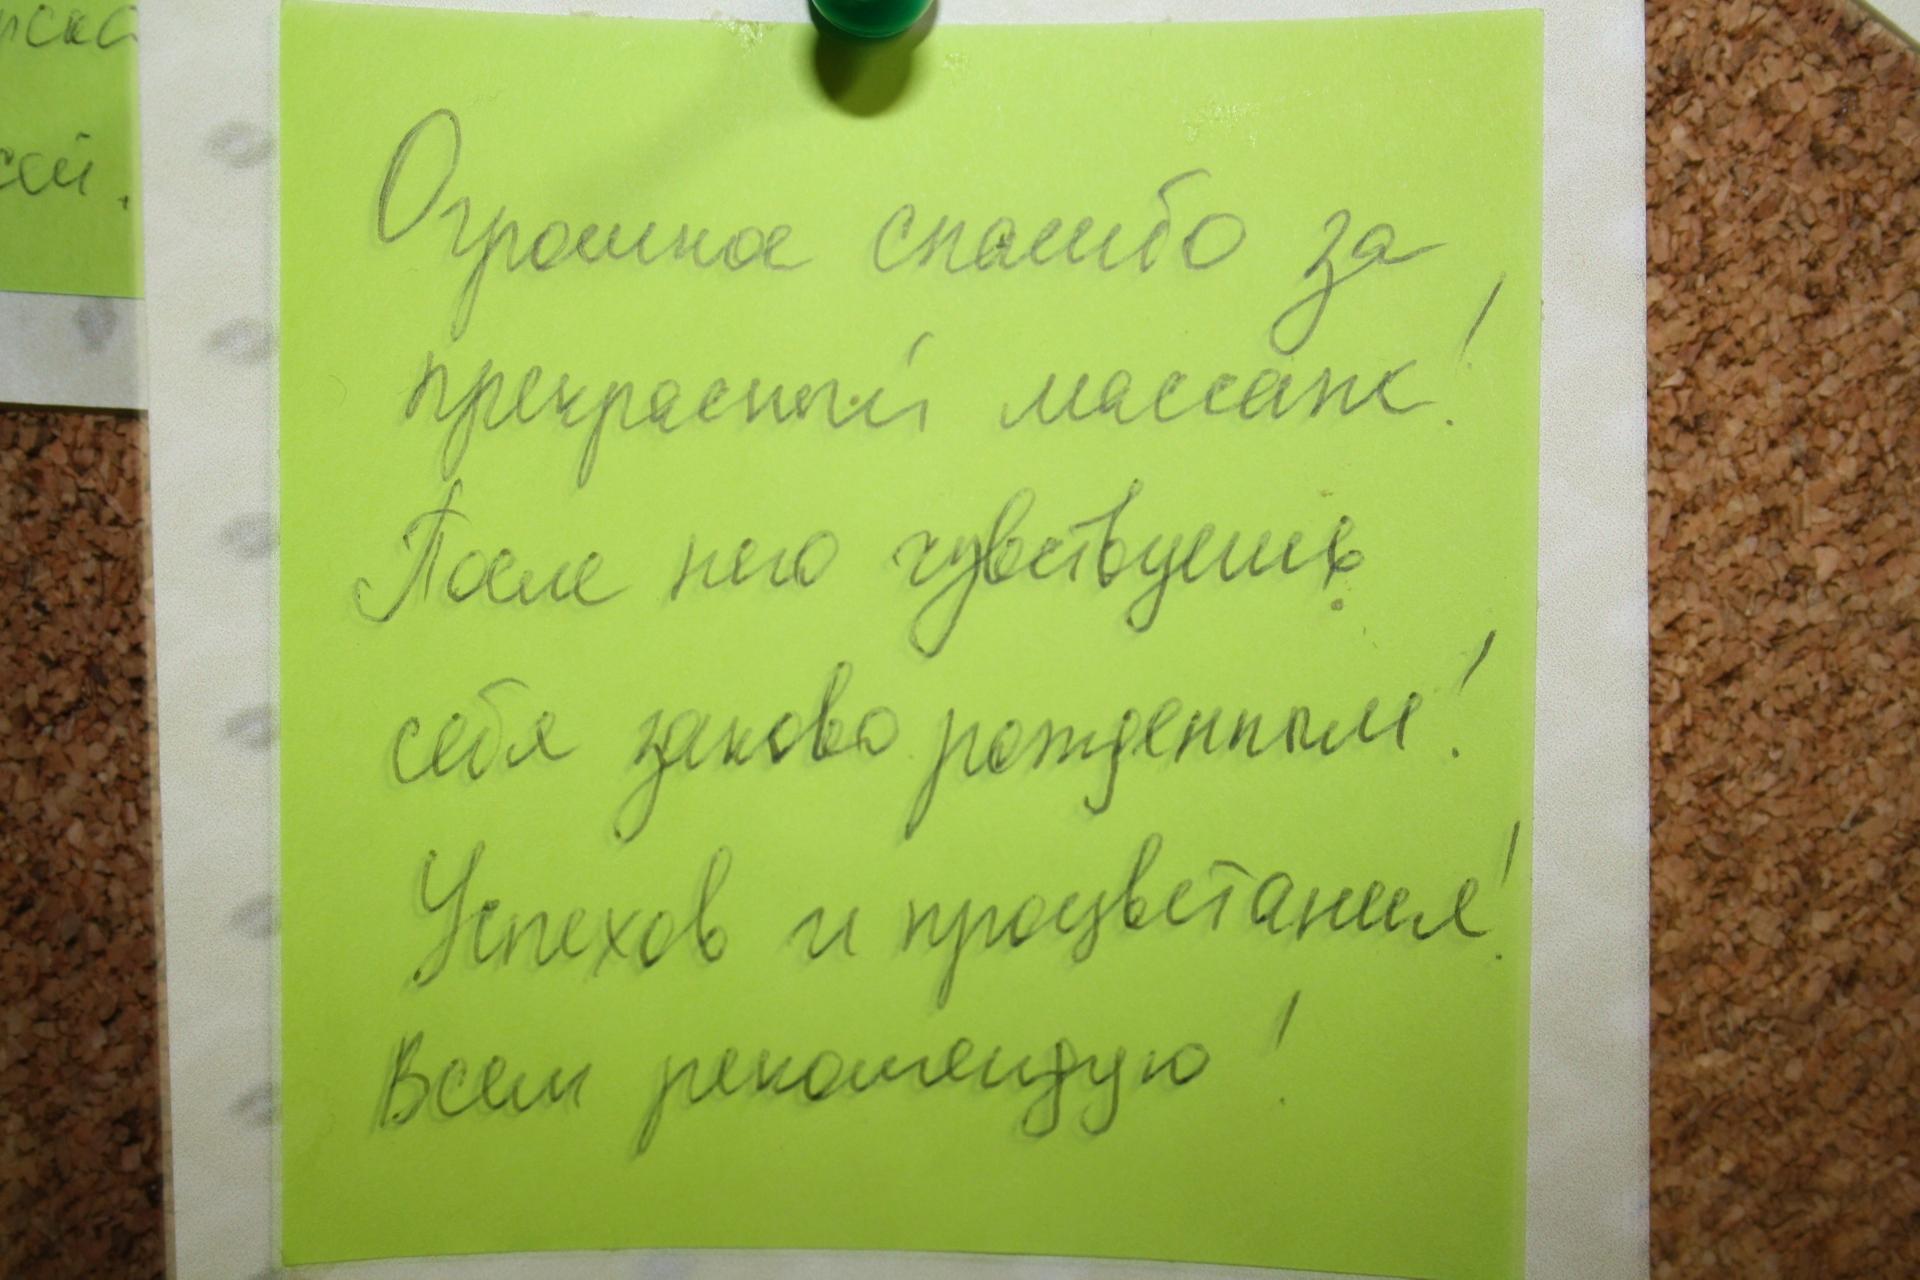 Огромное спасибо за
прекрасный массаж!
После него чувствуешь
себя заново рожденным!
Успехов и процветания!
Всем рекомендую!